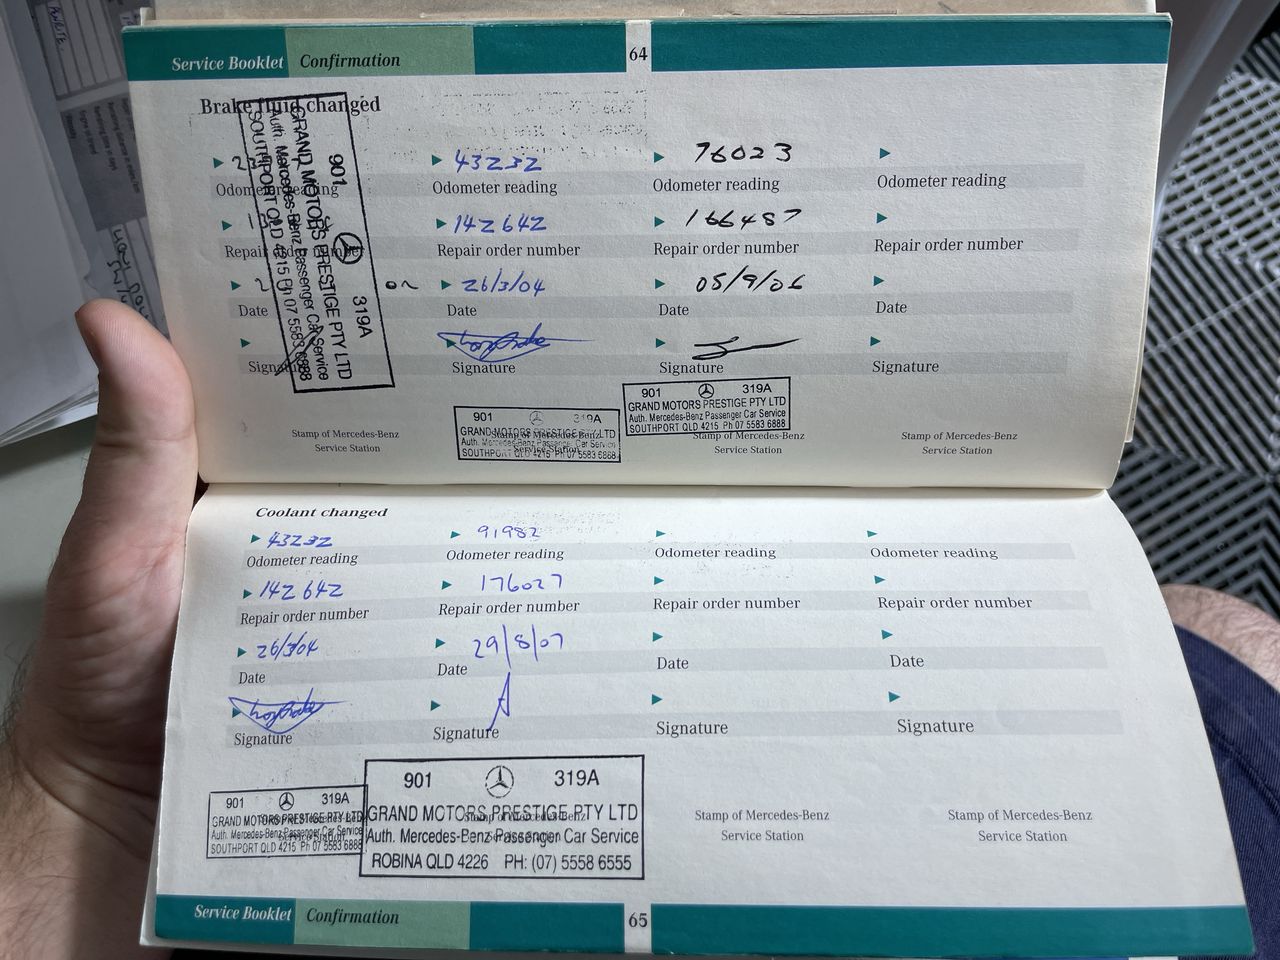 Service Booklet Confirmation 64
Brake fluid changed
43232 76023
Odometer reading Odometer reading Odometer reading Odometer reading
142642 166487
Repair order number Repair order number Repair order number Repair order number
26/3/04 05/9/06
Date Date Date Date
Signature Signature Signature Signature
901 319A
GRAND MOTORS PRESTIGE PTY LTD
Auth. Mercedes-Benz Passenger Car Service
SOUTHPORT QLD 4215 Ph 07 5583 6888
901 319A
GRAND MOTORS PRESTIGE PTY LTD
Auth. Mercedes-Benz Passenger Car Service
SOUTHPORT QLD 4215 Ph 07 5583 6888
901 319A
GRAND MOTORS PRESTIGE PTY LTD
Auth. Mercedes-Benz Passenger Car Service
SOUTHPORT QLD 4215 Ph 07 5583 6888
Stamp of Mercedes-Benz Stamp of Mercedes-Benz Stamp of Mercedes-Benz Stamp of Mercedes-Benz
Service Station Service Station Service Station Service Station
Coolant changed
43232 91982
Odometer reading Odometer reading Odometer reading Odometer reading
142642 176027
Repair order number Repair order number Repair order number Repair order number
26/3/04 29/8/07
Date Date Date Date
Signature Signature Signature Signature
901 319A
GRAND MOTORS PRESTIGE PTY LTD
Auth. Mercedes-Benz Passenger Car Service
SOUTHPORT QLD 4215 Ph 07 5583 6888
901 319A
GRAND MOTORS PRESTIGE PTY LTD
Auth. Mercedes-Benz Passenger Car Service
ROBINA QLD 4226 PH: (07) 5558 6555
Stamp of Mercedes-Benz Stamp of Mercedes-Benz Stamp of Mercedes-Benz
Service Station Service Station Service Station Service Station
Service Booklet Confirmation 65